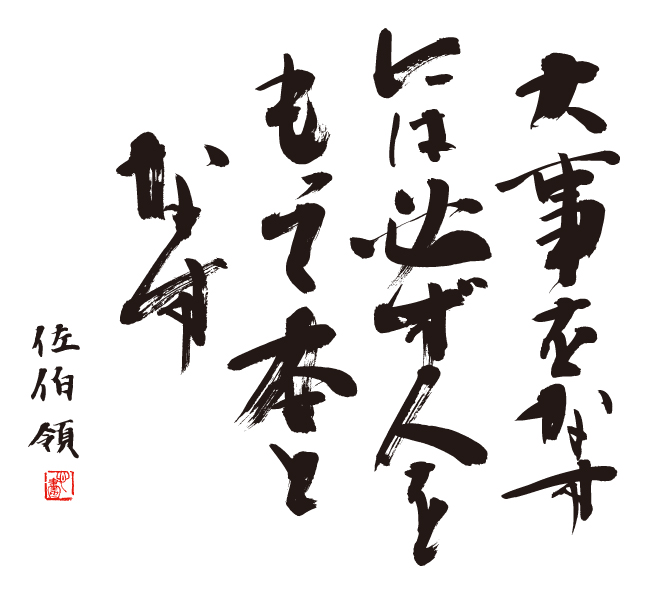 大事をなす
には必ず人を
もって本と
なす
佐伯領